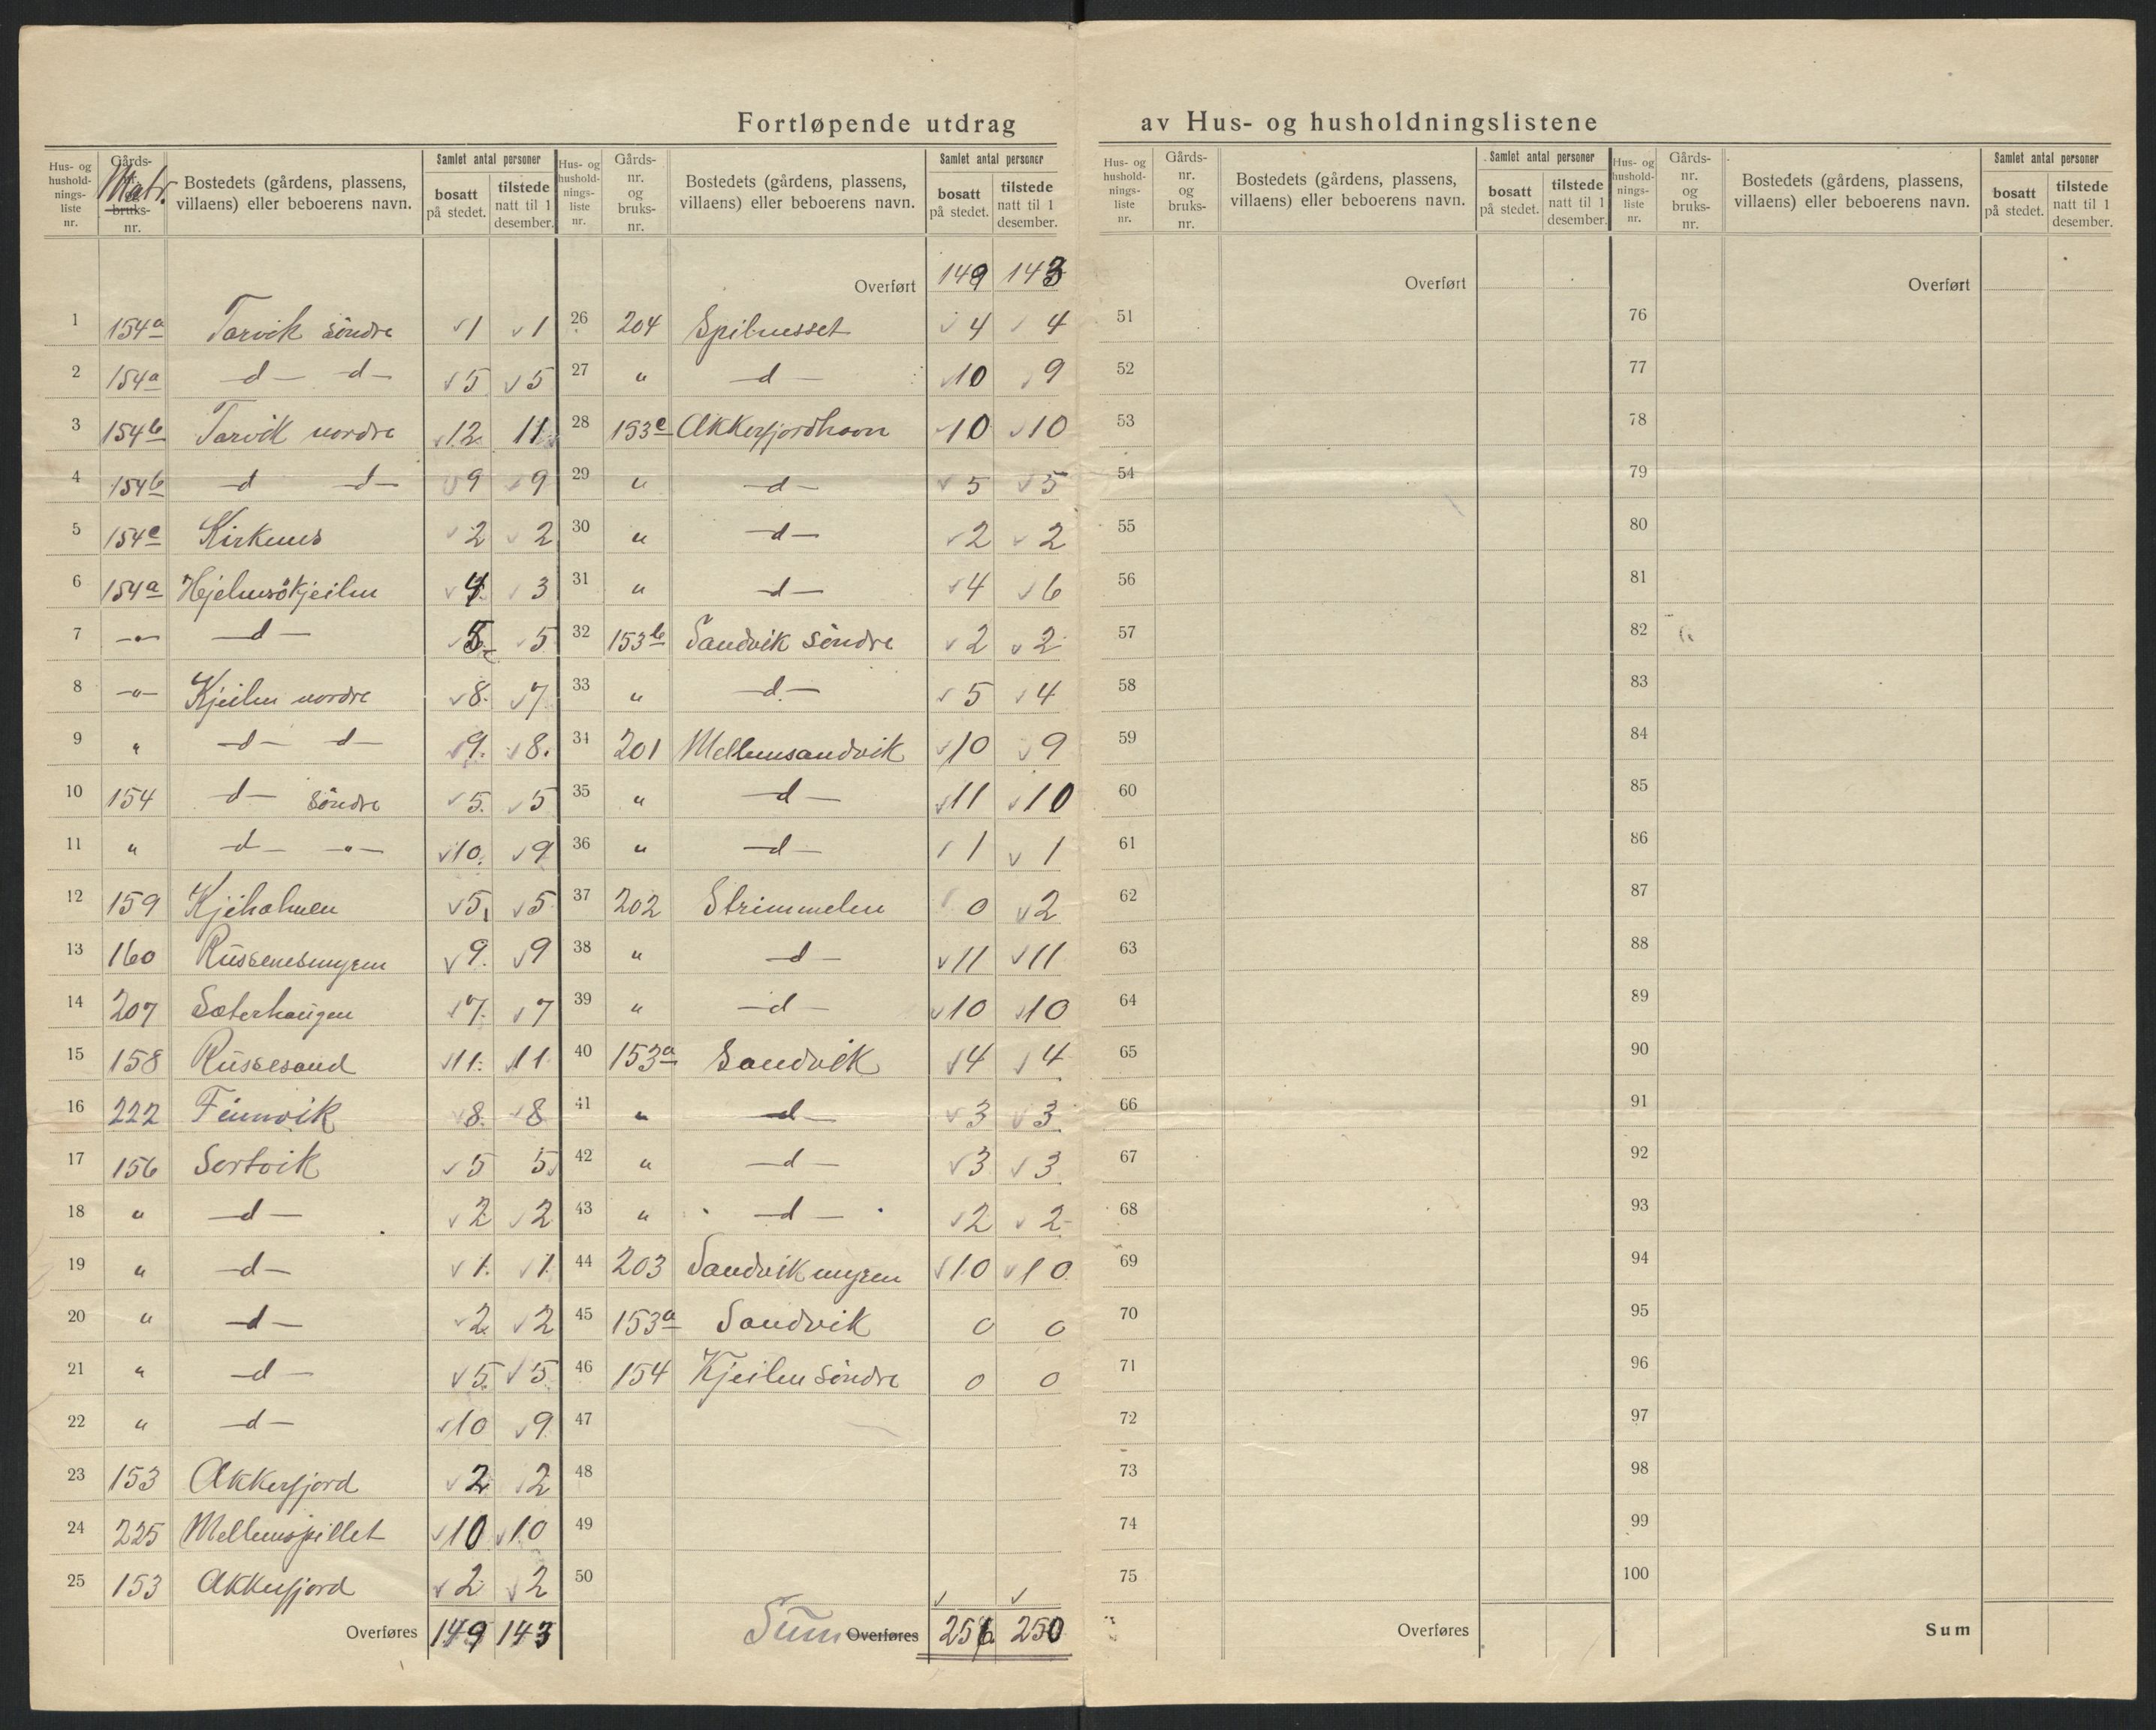 Fortløpende utdrag av Hus- og husholdningslistene
Hus- og hushold- nings- liste nr. | Gårds- Matr. bruks- nr. | Bostedets (gårdens, plassens, villaens) eller beboerens navn. | Samlet antal personer | bosatt på stedet. | tilstede natt til 1 desember.
1 154a Tarvik söndre 1 1
2 154a —d— —d— 5 5
3 154b Tarvik nordre 12 11
4 154b —d —d— 9 9
5 154c Kirknes 2 2
6 154a Hjelmsökjeilen 4 3
7 —"— —d— 5 5
8 —"— Kjeilen nordre 8 7
9 " —d— —d— 9 8
10 154 —d— söndre 5 5
11 " —d— —"— 10 9
12 159 Kjeholmen 5 5
13 160 Russenesmyren 9 9
14 207 Sæterhaugen 7 7
15 158 Russesand 11 11
16 222 Finnvik 8 8
17 156 Sortvik 5 5
18 " —d— 2 2
19 " —d— 1 1
20 " —d— 2 2
21 " —d— 5 5
22 " —d— 10 9
23 153 Akkerfjord 2 2
24 225 Mellemspillet 10 10
25 153 Akkerfjord 2 2
Overføres 149 143
Hus- og hushold- nings- liste nr. | Gårds- nr. og bruks- nr. | Bostedets (gårdens, plassens, villaens) eller beboerens navn. | Samlet antal personer | bosatt på stedet. | tilstede natt til 1 desember.
Overført 149 143
26 204 Spilnesset 4 4
27 " —d— 10 9
28 153c Akkerfjordhavn 10 10
29 " —d— 5 5
30 " —d— 2 2
31 " —d— 4 6
32 153b Sandvik söndre 2 2
33 " —d— 5 4
34 201 Mellemsandvik 10 9
35 " —d— 11 10
36 " —d— 1 1
37 202 Strimmelen 0 2
38 " —d— 11 11
39 " —d— 10 10
40 153a Sandvik 4 4
41 " —d— 3 3
42 " —d— 3 3
43 " —d— 2 2
44 203 Sandvikmyren 10 10
45 153a Sandvik 0 0
46 154 Kjeilen söndre 0 0
47
48
49
50
Sum Overføres 256 250
Hus- og hushold- nings- liste nr. | Gårds- nr. og bruks- nr. | Bostedets (gårdens, plassens, villaens) eller beboerens navn. | Samlet antal personer | bosatt på stedet. | tilstede natt til 1 desember.
Overført
51
52
53
54
55
56
57
58
59
60
61
62
63
64
65
66
67
68
69
70
71
72
73
74
75
Overføres
Hus- og hushold- nings- liste nr. | Gårds- nr. og bruks- nr. | Bostedets (gårdens, plassens, villaens) eller beboerens navn. | Samlet antal personer | bosatt på stedet. | tilstede natt til 1 desember.
Overført
76
77
78
79
80
81
82
83
84
85
86
87
88
89
90
91
92
93
94
95
96
97
98
99
100
Sum